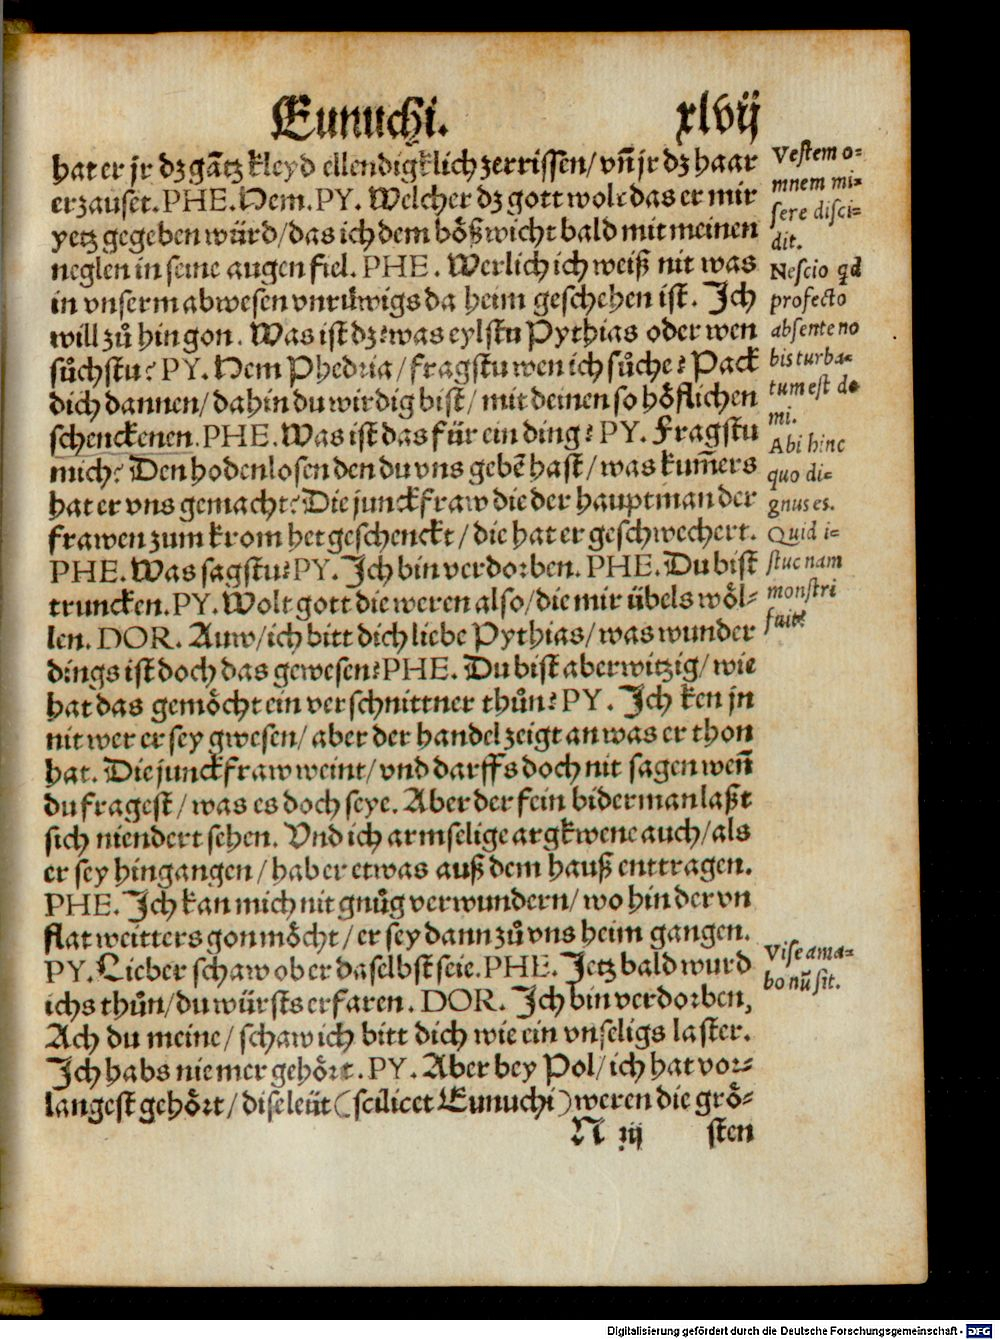 Eunuchi. xlvij
hat er jr dz gãtz kleyd ellendigklich zerrissen/ vñ jr dz haar
erzauset. PHE. Hem. PY. Welcher dz gott wolt das er mir
yetz gegeben würd/ das ich dem bößwicht bald mit meinen
neglen in seine augen fiel. PHE. Werlich ich weiß nit was
in vnserm abwesen vnrüwigs da heim geschehen ist. Ich
will zů hin gon. Was ist dz? was eylstu Pythias oder wen
sůchstu? PY. Hem Phedria/ fragstu wen ich sůche? Pack
dich dannen/ dahin du wirdig bist/ mit deinen so höflichen
schenckenen. PHE. Was ist das für ein ding? PY. Fragstu
mich? Den hodenlosen den du vns gebẽ hast/ was kum̃ers
hat er vns gemacht? Die junckfraw die der hauptman der
frawen zum krom het geschenckt/ die hat er geschwechert.
PHE. Was sagstu? PY. Ich bin verdorben. PHE. Du bist
truncken. PY. Wolt gott die weren also/ die mir übels wöl⸗
len. DOR. Auw/ ich bitt dich liebe Pythias/ was wunder
dings ist doch das gewesen? PHE. Du bist aberwitzig/ wie
hat das gemöcht ein verschnittner thůn? PY. Ich ken jn
nit wer er sey gwesen/ aber der handel zeigt an was er thon
hat. Die junckfraw weint/ vnd darffs doch nit sagen weñ
du fragest/ was es doch seye. Aber der fein biderman laßt
sich niendert sehen. Vnd ich armselige argkwene auch/ als
er sey hingangen/ hab er etwas auß dem hauß enttragen.
PHE. Ich kan mich nit gnůg verwundern/ wo hin der vn
flat weitters gon möcht/ er sey dann zů vns heim gangen.
PY. Lieber schaw ob er daselbst seie. PHE. Jetz bald wurd
ichs thůn/ du würsts erfaren. DOR. Ich bin verdorben,
Ach du meine/ schaw ich bitt dich wie ein vnseligs laster.
Ich habs nie mer gehört. PY. Aber bey Pol/ ich hat vor⸗
langest gehört/ dise leüt (scilicet Eunuchi) weren die grö⸗
N iij sten
Vestem o-
mnem mi-
sere disci-
dit.
Nescio qd
profecto
absente no
bis turba-
tum est do
mi.
Abi hinc
quo di-
gnus es.
Quid i-
stuc nam
monstri
fuit?
Vise ama-
bo nũ sit.
Digitalisierung gefördert durch die Deutsche Forschungsgemeinschaft - DFG